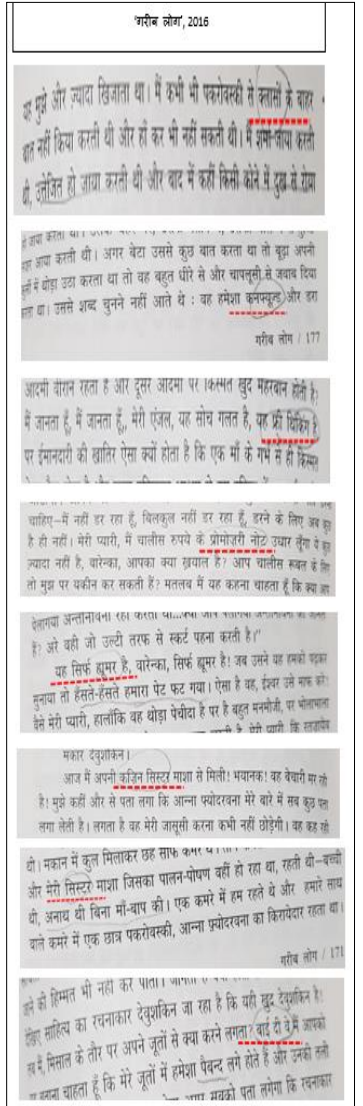 'गरीब लोग', 2016
यह मुझे और ज़्यादा खिजाता था। मैं कभी भी पकरोवस्की से क्लासों के बाहर
बात नहीं किया करती थी और हाँ कर भी नहीं सकती थी। मैं शर्मा-जाया करती
थी, उत्तेजित हो जाया करती थी और बाद में कहीं किसी कोने में दुख से रोया
आया करती थी। अगर बेटा उससे कुछ बात करता था तो बूढ़ा अपनी
थोड़ा उठा करता था तो वह बहुत धीरे से और चापलूसी से जवाब दिया
था। उससे शब्द चुनने नहीं आते थे : वह हमेशा कनफ्यूज्ड और डरा
गरीब लोग / 177
आदमी वीरान रहता है और दूसरे आदमी पर किस्मत खुद मेहरबान होती है;
मैं जानता हूँ, मैं जानता हूँ, मेरी एंजल, यह सोच गलत है, यह फ्री थिंकिंग है
पर ईमानदारी की खातिर ऐसा क्यों होता है कि एक माँ के गर्भ से ही किस्मत
चाहिए–मैं नहीं डर रहा हूँ, बिलकुल नहीं डर रहा हूँ, डरने के लिए अब कुछ
है ही नहीं। मेरी प्यारी, मैं चालीस रुपये के प्रोमोज़री नोट उधार लूँगा ये कुछ
ज़्यादा नहीं है, वारेन्का, आपका क्या ख़याल है? आप चालीस रूबल के लिए
तो मुझ पर यकीन कर सकती हैं? मतलब मैं यह कहना चाहता हूँ कि क्या आप
अन्तानोवना रहा करती थी...क्या आप
हैं? अरे वही जो उल्टी तरफ से स्कर्ट पहना करती है।"
यह सिर्फ ह्यूमर है, वारेन्का, सिर्फ ह्यूमर है! जब उसने यह हमको पढ़कर
सुनाया तो हँसते-हँसते हमारा पेट फट गया। ऐसा है वह, ईश्वर उसे माफ करे!
वैसे मेरी प्यारी, हालाँकि वह थोड़ा पेचीदा है पर है बहुत मनमौजी, पर भोलाभाला
मकार देवुशकिन।
आज मैं अपनी कज़िन सिस्टर माशा से मिली! भयानक! वह बेचारी मर रही
है! मुझे कहीं और से पता लगा कि आन्ना फ्योदरवना मेरे बारे में सब कुछ पता
लगा लेती है। लगता है वह मेरी जासूसी करना कभी नहीं छोड़ेगी। वह कह रही
थी। मकान में कुल मिलाकर छह साफ कमरे थे।
और मेरी सिस्टर माशा जिसका पालन-पोषण वहीं हो रहा था, रहती थी–बच्ची
थी, अनाथ थी बिना माँ-बाप की। एक कमरे में हम रहते थे और हमारे साथ
वाले कमरे में एक छात्र पकरोवस्की, आन्ना फ्योदरवना का किरायेदार रहता था।
गरीब लोग / 171
की हिम्मत भी नहीं कर पाता।
साहित्य का रचनाकार देवुशकिन जा रहा है कि यही खुद देवुशकिन है!
में, मिसाल के तौर पर अपने जूतों से क्या करने लगता? बाई दी वे मैं आपको
बताना चाहता हूँ कि मेरे जूतों में हमेशा पैबन्द लगे होते हैं और उनकी तली
सबको पता लगेगा कि रचनाकार